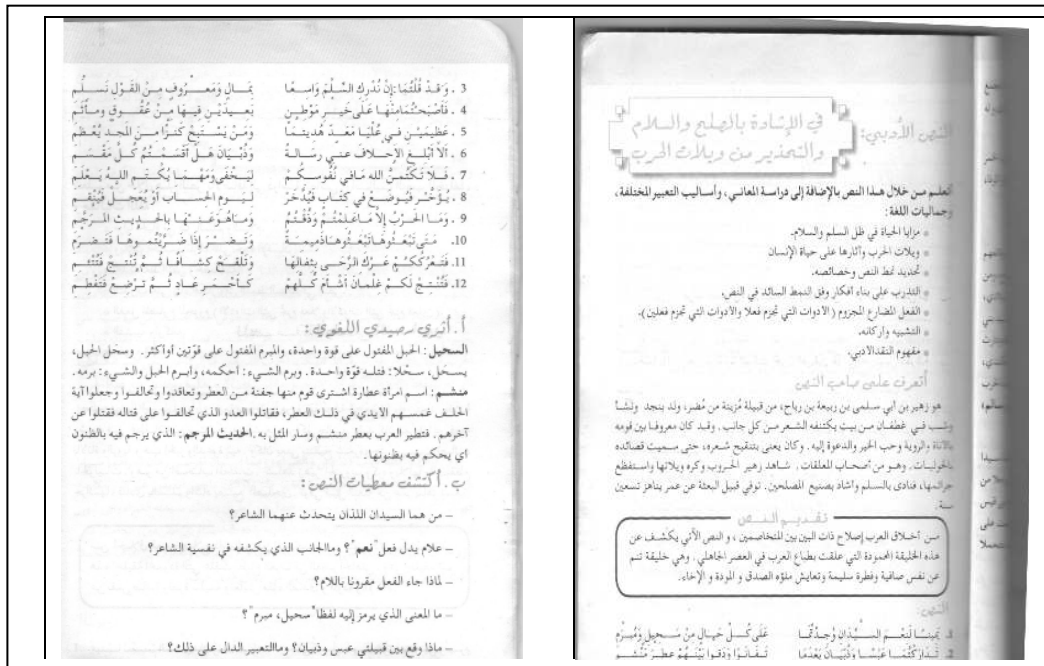 النص الأدبي:
في الإشادة بالصلح والسلام
والتحذير من ويلات الحرب
أتعلم من خلال هذا النص بالإضافة إلى دراسة المعاني، وأساليب التعبير المختلفة،
وجماليات اللغة:
مزايا الحياة في ظل السلم والسلام.
ويلات الحرب وآثارها على حياة الإنسان
تحديد نمط النص وخصائصه.
التدرب على بناء أفكار وفق النمط السائد في النص.
الفعل المضارع المجزوم (الأدوات التي تجزم فعلا والأدوات التي تجزم فعلين).
التشبيه واركانه.
مفهوم النقد الادبي.
أتعرف على صاحب النص
هو زهير بن أبي سلمى بن ربيعة بن رباح، من قبيلة مُزينة من مُضر، ولد بنجد ونشأ
وشب في غطفان من بيت يكتنفه الشعر من كل جانب. وقد كان معروفا بين قومه
بالأناة والروية وحب الخير والدعوة إليه. وكان يعنى بتنقيح شعره، حتى سميت قصائده
بالحوليات. وهو من أصحاب المعلقات. شاهد زهير الحروب وكره ويلاتها واستفظع
جرائمها، فنادى بالسلم واشاد بصنيع المصلحين. توفي قبيل البعثة عن عمر يناهز تسعين
سنة.
تقديم النص
من أخلاق العرب إصلاح ذات البين بين المتخاصمين، و النص الآتي يكشف عن
هذه الخليقة المحمودة التي علقت بطباع العرب في العصر الجاهلي. وهي خليقة تنم
عن نفس صافية وفطرة سليمة وتعايش ملؤه الصدق و المودة و الإخاء.
النص:
1. يَمِينًا لَنِعْمَ السَّيِّدَانِ وُجِدْتُمَا عَلَى كُلِّ حَالٍ مِنْ سَحِيلٍ وَمُبْرَمِ
2. تَدَارَكْتُمَا عَبْسًا وَذُبْيَانَ بَعْدَمَا تَفَانَوْا وَدَقُّوا بَيْنَهُمْ عِطْرَ مَنْشِمِ
3. وَقَدْ قُلْتُمَا: إِنْ نُدْرِكِ السِّلْمَ وَاسِعًا بِمَالٍ وَمَعْرُوفٍ مِنَ القَوْلِ نَسْلَمِ
4. فَأَصْبَحْتُمَا مِنْهَا عَلَى خَيْرِ مَوْطِنٍ بَعِيدَيْنِ فِيهَا مِنْ عُقُوقٍ ومأْثَمِ
5. عَظِيمَيْنِ في عُلْيَا مَعَدٍّ هُدِيتُمَا وَمَنْ يَسْتَبِحْ كَنْزًا مِنَ المجدِ يَعْظُمِ
6. أَلاَ أَبْلِغِ الأَحْلاَفَ عني رِسَالةً وَذُبْيَانَ هَلْ أَقْسَمْتُمُ كُلَّ مُقْسَمِ
7. فَلاَ تَكْتُمُنَّ الله مَافي نُفُوسِكُمْ لِيَخْفَى وَمَهْمَا يُكْتَمِ اللهُ يَعْلَمِ
8. يُؤَخَّرْ فَيُوضَعْ في كِتَابٍ فَيُدَّخَرْ لِيَوْمِ الحِسَابِ أَوْ يُعَجَّلْ فَيُنْقَمِ
9. وَمَا الحَرْبُ إِلاَّ مَاعَلِمْتُمْ وَذُقْتُمُ وَمَاهُوَ عَنْهَا بالحَدِيثِ المُرَجَّمِ
10. مَتَى تَبْعَثُوهَا تَبْعَثُوهَا ذَمِيمَةً وَتَضْرَ إِذَا ضَرَّيْتُمُوهَا فَتَضْرَمِ
11. فَتَعْرُكْكُمُ عَرْكَ الرَّحَى بِثفالِهَا وَتَلْقَحْ كِشَافًا ثُمَّ تُنْتَجْ فَتُتْئِمِ
12. فَتُنْتِجْ لَكُمْ غِلْمَانَ أَشْأَمَ كُلُّهُمْ كَأَحْمَرِ عَادٍ ثُمَّ تُرْضِعْ فَتَفْطِمِ
أ. أثري رصيدي اللغوي:
السحيل: الحبل المفتول على قوة واحدة، والمبرم المفتول على قوّتين أو اكثر. وسحَل الحبل،
يسحَل، سحْلا: فتله قوّة واحدة. وبرم الشيء: احكمه، وابرم الحبل والشيء: برمه.
منشم: اسم امرأة عطارة اشترى قوم منها جفنة من العطر وتعاقدوا وتحالفوا وجعلوا آية
الحلف غمسهم الأيدي في ذلك العطر، فقاتلوا العدو الذي تحالفوا على قتاله فقتلوا عن
آخرهم. فتطير العرب بعطر منشم وسار المثل به. الحديث المرجم: الذي يرجم فيه بالظنون
اي يحكم فيه بظنونها.
ب. أكتشف معطيات النص:
– من هما السيدان اللذان يتحدث عنهما الشاعر؟
– علام يدل فعل "نعم"؟ وماالجانب الذي يكشفه في نفسية الشاعر؟
– لماذا جاء الفعل مقرونا باللام؟
– ما المعنى الذي يرمز إليه لفظا "سحيل، مبرم"؟
– ماذا وقع بين قبيلتي عبس وذبيان؟ وماالتعبير الدال على ذلك؟